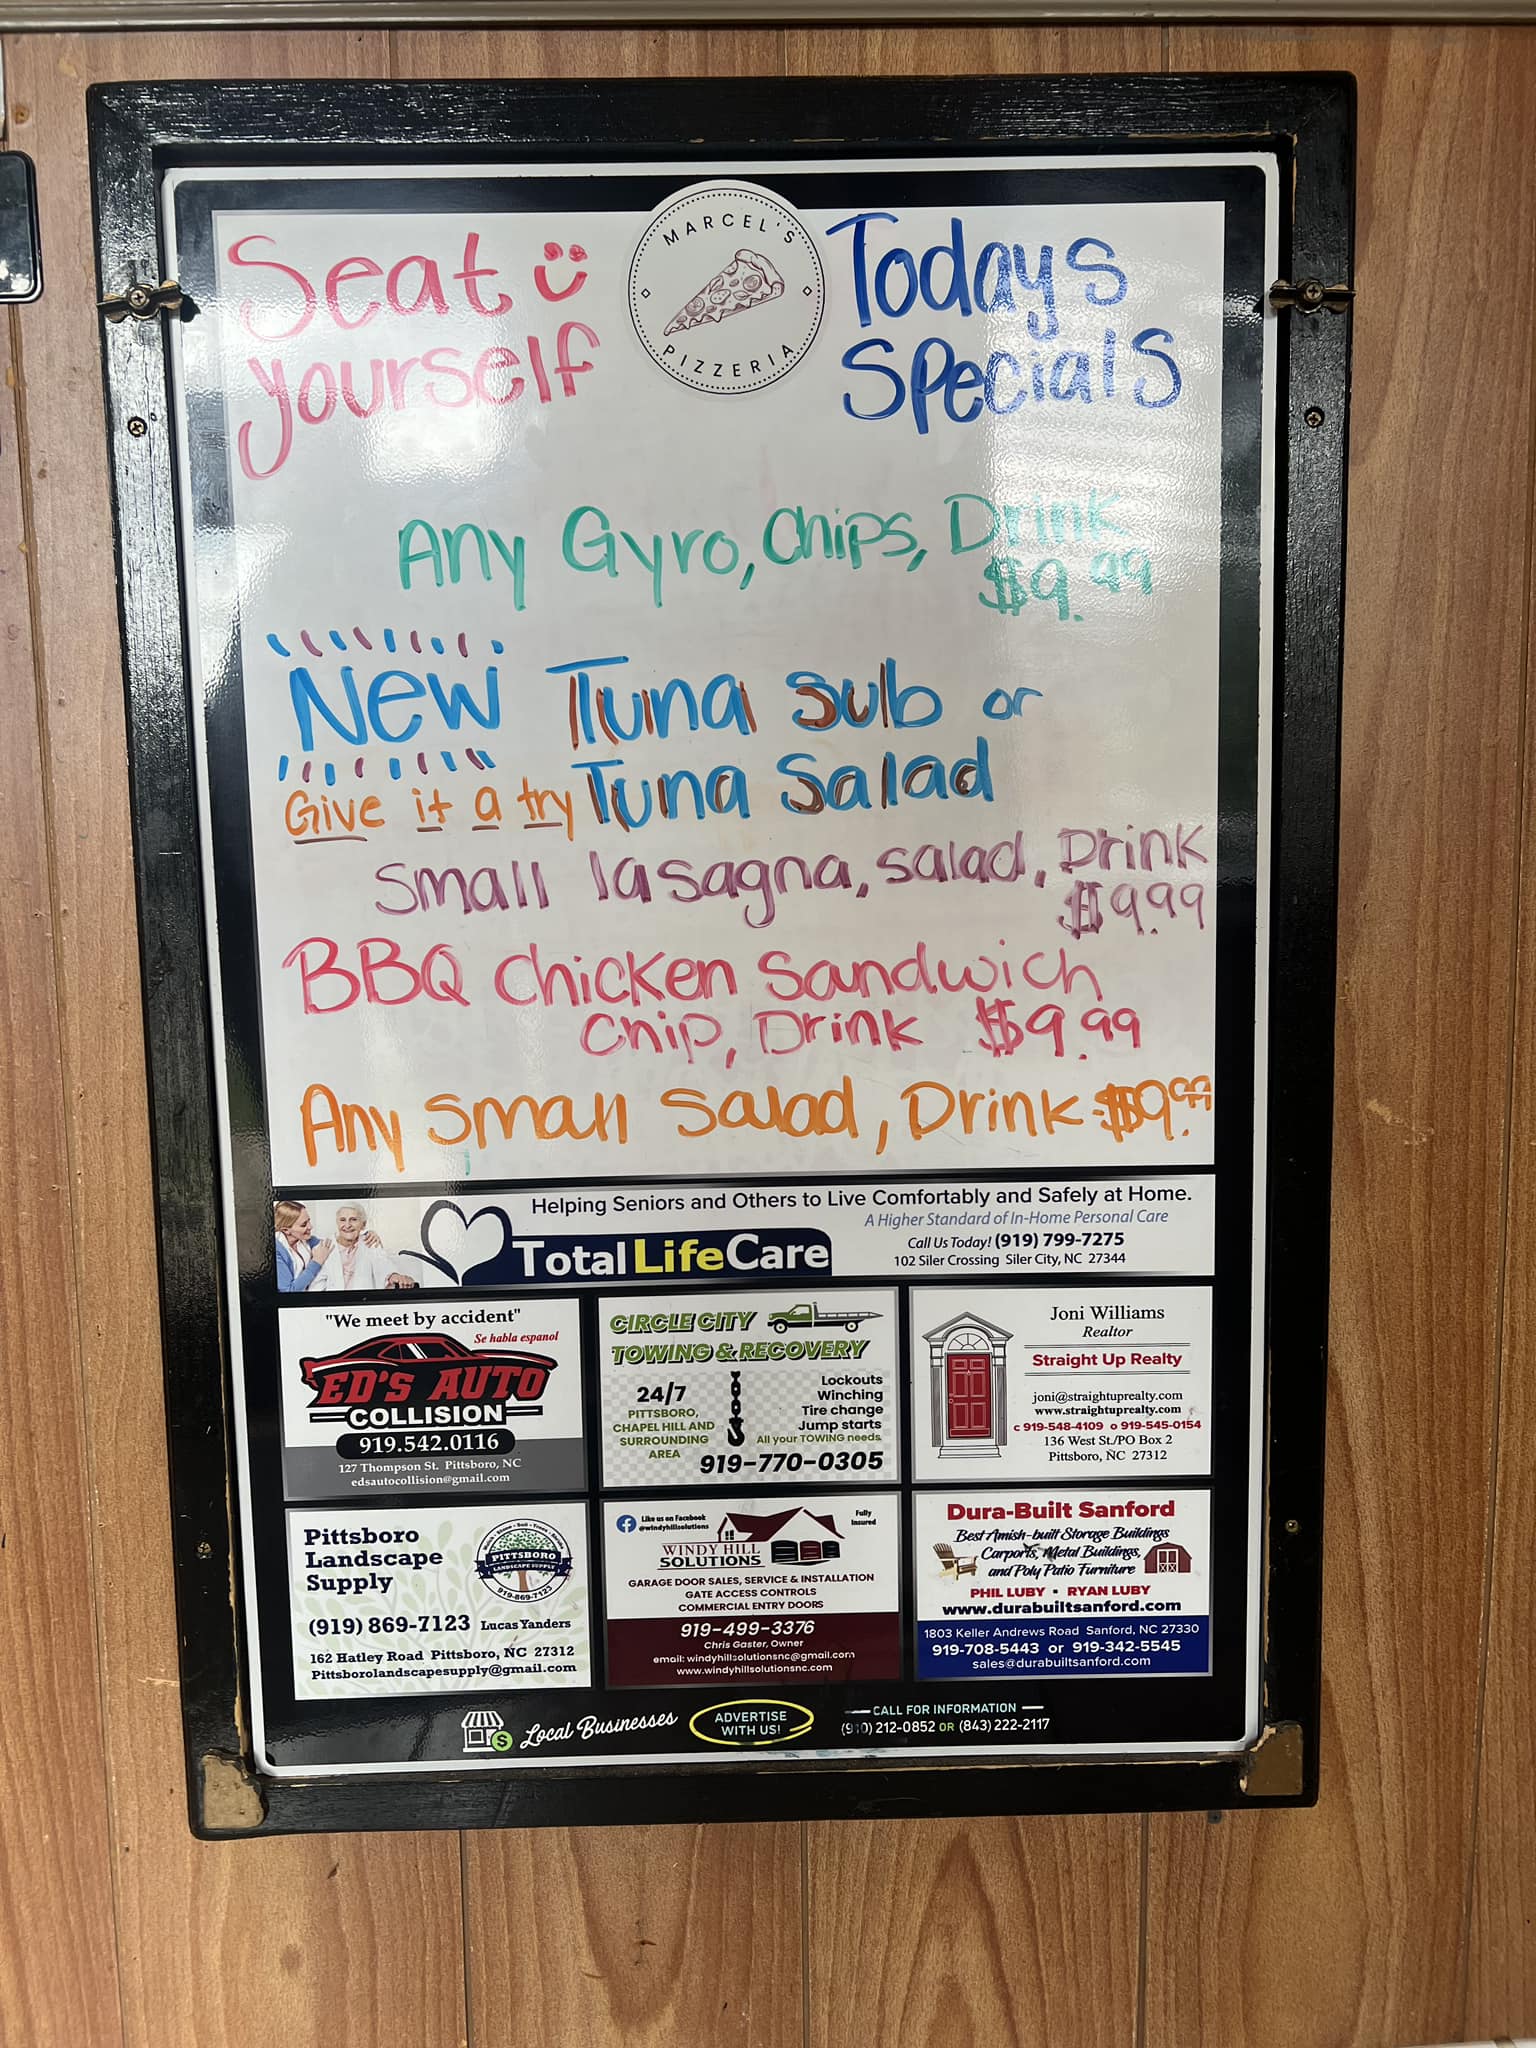 Seat
yourself
MARCEL'S
PIZZERIA
Todays
Specials
Any Gyro, Chips, Drink
$9.99
New Tuna Sub or
Give it a try Tuna Salad
Small lasagna, salad, Drink
$9.99
BBQ Chicken Sandwich
Chip, Drink $9.99
Any Small Salad, Drink $9.99
Helping Seniors and Others to Live Comfortably and Safely at Home.
A Higher Standard of In-Home Personal Care
Total LifeCare
Call Us Today! (919) 799-7275
102 Siler Crossing Siler City, NC 27344
"We meet by accident"
Se habla espanol
ED'S AUTO
COLLISION
919.542.0116
127 Thompson St. Pittsboro, NC
edsautocollision@gmail.com
CIRCLE CITY
TOWING & RECOVERY
24/7
PITTSBORO,
CHAPEL HILL AND
SURROUNDING
AREA
Lockouts
Winching
Tire change
Jump starts
All your TOWING needs
919-770-0305
Joni Williams
Realtor
Straight Up Realty
joni@straightuprealty.com
www.straightuprealty.com
c 919-548-4109 o 919-545-0154
136 West St./PO Box 2
Pittsboro, NC 27312
Pittsboro
Landscape
Supply
PITTSBORO
LANDSCAPE SUPPLY
919-869-7123
(919) 869-7123 Lucas Yanders
162 Hatley Road Pittsboro, NC 27312
Pittsborolandscapesupply@gmail.com
Like us on Facebook
@windyhillsolutions
Fully
Insured
WINDY HILL
SOLUTIONS
GARAGE DOOR SALES, SERVICE & INSTALLATION
GATE ACCESS CONTROLS
COMMERCIAL ENTRY DOORS
919-499-3376
Chris Gaster, Owner
email: windyhillsolutionsnc@gmail.com
www.windyhillsolutionsnc.com
Dura-Built Sanford
Best Amish-built Storage Buildings
Carports, Metal Buildings,
and Poly Patio Furniture
PHIL LUBY • RYAN LUBY
www.durabuiltsanford.com
1803 Keller Andrews Road Sanford, NC 27330
919-708-5443 or 919-342-5545
sales@durabuiltsanford.com
Local Businesses
ADVERTISE
WITH US!
CALL FOR INFORMATION
(910) 212-0852 OR (843) 222-2117